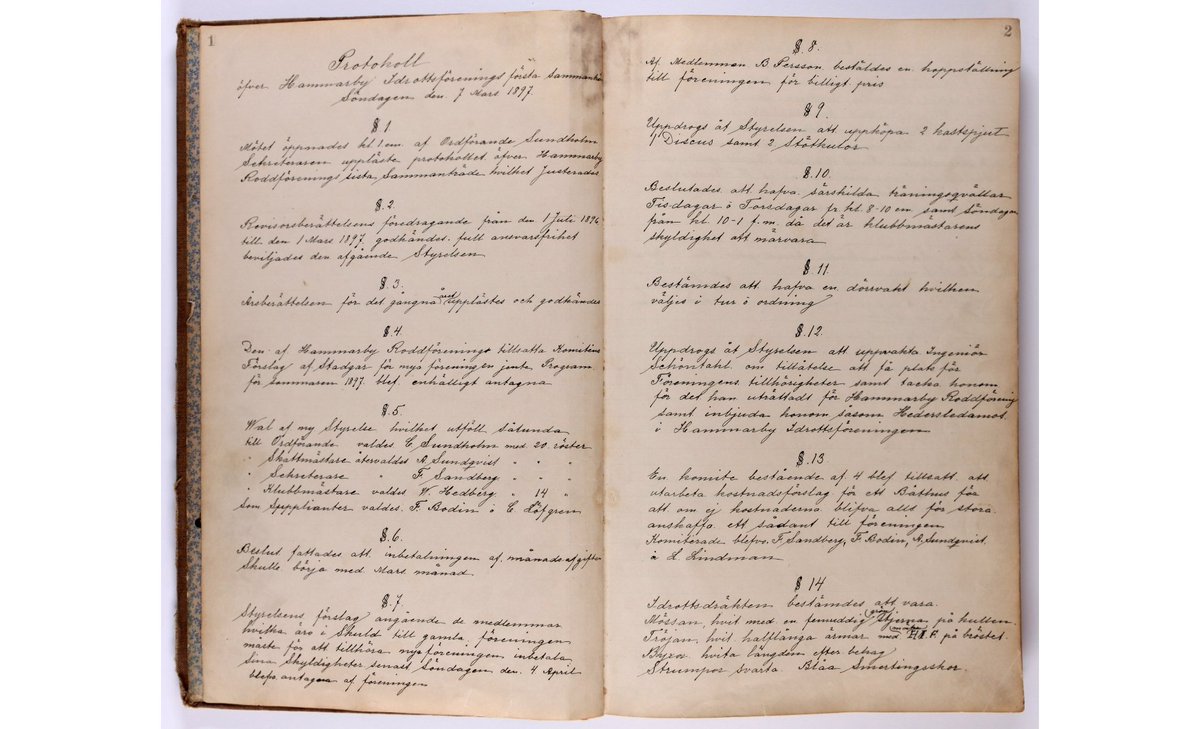 1
Protokoll
öfver Hammarby Idrottsförenings första sammanträ
Söndagen den 7 Mars 1897.
§ 1
Mötet öppnades kl 1 em. af Ordförande Sundholm
Sekreteraren uppläste protokollet öfver Hammarby
Roddförenings sista Sammanträde hvilket Justerades
§. 2.
Revisorsberättelsens föredragande från den 1 Juli 1896
till den 1 Mars 1897 godkändes, full ansvarsfrihet
beviljades den afgående Styrelsen
§. 3.
Årsberättelsen för det gångna året upplästes och godkändes
§ 4.
Den af Hammarby Roddförenings tillsatta Komiténs
Förslag af Stadgar för nya föreningen jemte Program
för sommaren 1897 blef enhälligt antagna
§. 5.
Wal af ny Styrelse hvilket utföll sålunda
till Ordförande valdes C. Sundholm med 20. röster
" Skattmästare återvaldes A. Sundqvist " " "
" Sekreterare " F. Sandberg " " "
" Klubbmästare valdes W. Hedberg " 14 "
Som Supplianter valdes F. Bodin o C. Löfgren
§. 6.
Beslut fattades att inbetalningen af månadsafgifter
Skulle börja med Mars månad
§. 7.
Styrelsens förslag angående de medlemmar
hvilka äro i Skuld till gamla föreningen
måste för att tillhöra nya föreningen inbetala
Sina Skyldigheter senast Söndagen den 4 April
blefvo antagna af föreningen
2
§. 8.
Af Medlemmen B Persson beställdes en hoppställning
till föreningen för billigt pris
§ 9.
Uppdrogs åt Styrelsen att uppköpa 2 kastspjut
1 Discus samt 2 Stötkulor
§. 10.
Beslutades att hafva särskilda träningsqvällar
Tisdagar o Torsdagar fr kl. 8-10 em samt söndagen
från kl 10-1 f.m. då det är klubbmästarens
skyldighet att närvara
§. 11.
Bestämdes att hafva en dörrvakt hvilken
väljes i tur o ordning
§. 12.
Uppdrogs åt Styrelsen att uppvakta Ingeniör
om tillåtelse att få plats för
Föreningens tillhörigheter samt tacka honom
för det han uträttadt för Hammarby Roddförening
samt inbjuda honom såsom Hedersledamot
i Hammarby Idrottsföreningen
§. 13
En komite bestående af 4 blef tillsatt att
utarbeta kostnadsförslag för ett Båthus för
att om ej kostnaderna blifva allt för stora
anskaffa ett sådant till föreningen
Komiterade blefvo F. Sandberg, F. Bodin, A. Sundqvist
o H. Lindman
§ 14
Idrottsdräkten bestämdes att vara.
Mössan hvit med en femuddig grön stjerna på kullen
Tröjan hvit halflånga ärmar med märke H.I.F. på bröstet.
Byxor hvita längden efter behag
Strumpor svarta Blåa Smertingsskor